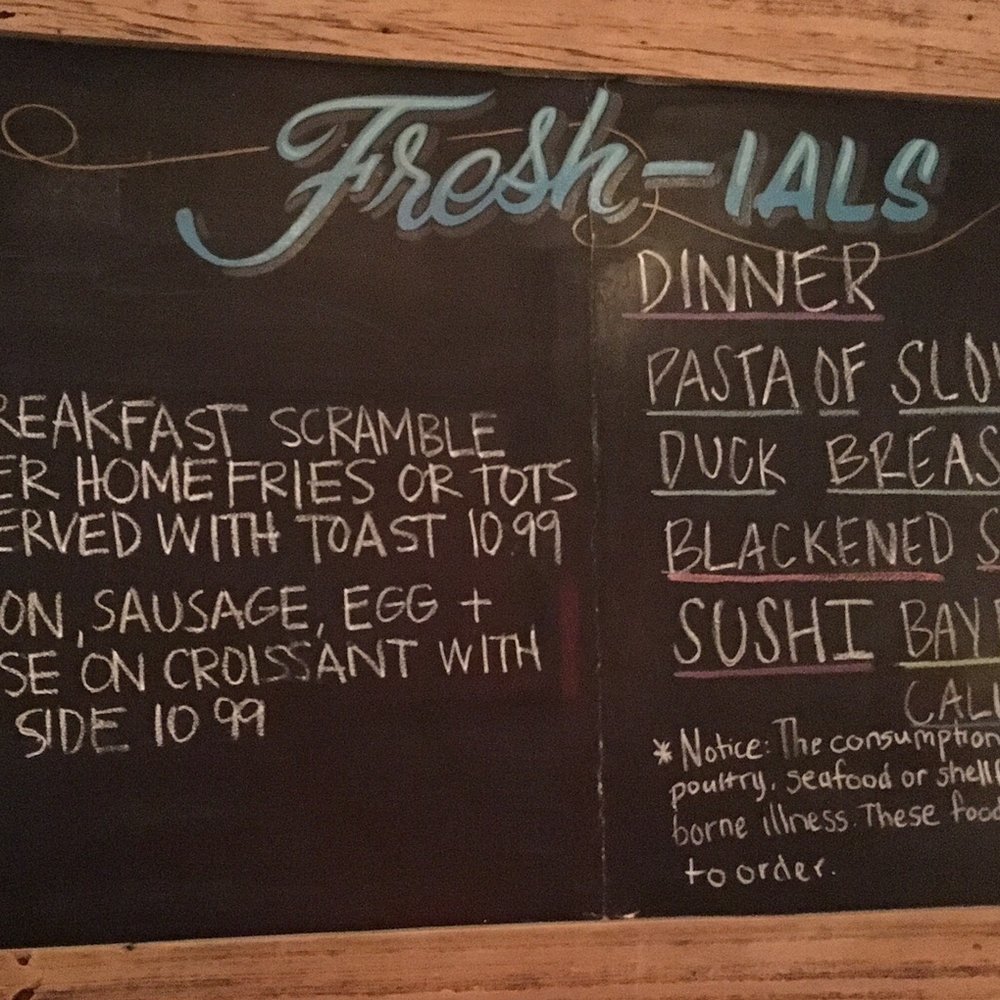 Fresh-IALS
REAKFAST SCRAMBLE
ER HOME FRIES OR TOTS
ERVED WITH TOAST 10.99
ON, SAUSAGE, EGG +
SE ON CROISSANT WITH
SIDE 10 99
DINNER
PASTA OF SLOW
DUCK BREAS
BLACKENED S
SUSHI BAY
CALI
* Notice: The consumption
poultry, seafood or shellf
borne illness. These food
to order.